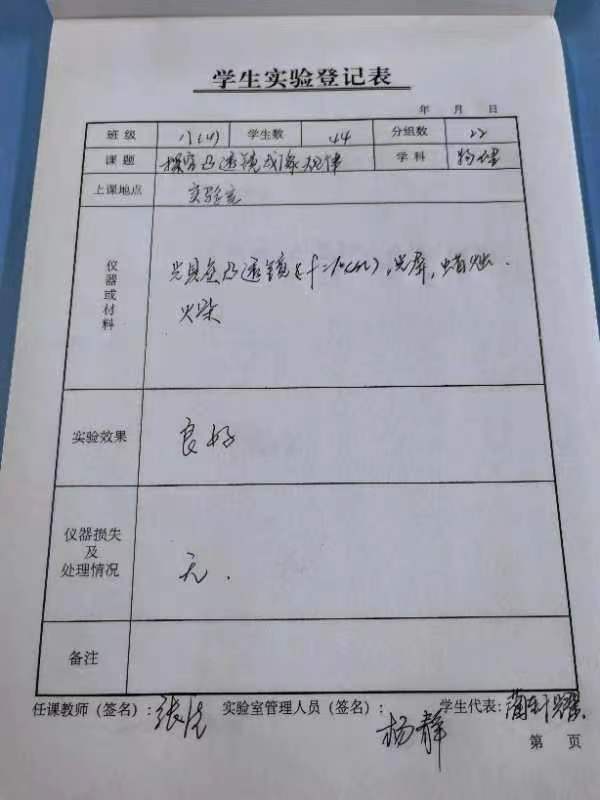 学生实验登记表
年 月 日
班级 八(4) 学生数 44 分组数 22
课题 探究凸透镜成像规律 学科 物理
上课地点 实验室
仪器或材料 光具座凸透镜(f=10cm),光屏,蜡烛.
火柴
实验效果 良好
仪器损失
及
处理情况 无.
备注
任课教师(签名): 实验室管理人员(签名): 杨静 学生代表:
第 页